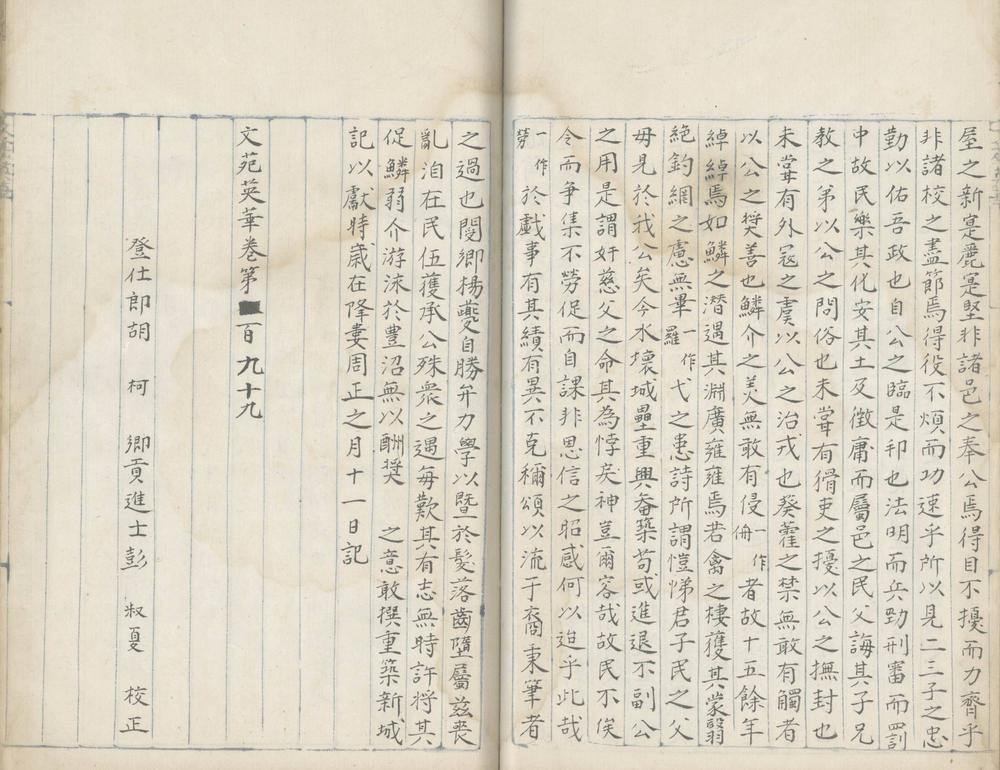 屋之新寔麗寔堅非諸邑之奉公焉得目不擾而力齊乎
非諸校之盡節焉得役不煩而功速乎所以見二三子之忠
勤以佑吾政也自公之臨是邦也法明而兵勁刑審而罰
中故民樂其化安其土及徵庸而屬邑之民父誨其子兄
教之弟以公之問俗也未甞有猾吏之擾以公之撫封也
未甞有外冦之虞以公之治戎也葵藿之禁無敢有觸者
以公之奬善也鱗介之美無敢有侵一作侮者故十五餘年
綽綽焉如鱗之潜遇其淵廣雍雍焉若禽之棲獲其蒙翳
絶鈎網之慮無畢一作羅弋之恚詩所謂愷悌君子民之父
母見於我公矣今水壞城壘重興畚築苟或進退不副公
之用是謂奸慈父之命其為悖矣神豈爾容哉故民不俟
令而争集不勞促而自課非恩信之昭感何以迨乎此哉
一作勞於戯事有其績有異不克稱頌以流于裔秉筆者
之過也閿鄉楊夔自勝弁力學以暨於髪落齒墮屬兹喪
亂洎在民伍獲承公殊衆之遇每歎其有志無時許將其
促鱗弱介游泳於豊沼無以酬奬 之意敢撰重築新城
記以獻時歲在降婁周正之月十一日記
文苑英華卷第 百九十九
登仕郎胡 柯 鄉貢進士彭 叔夏 校正